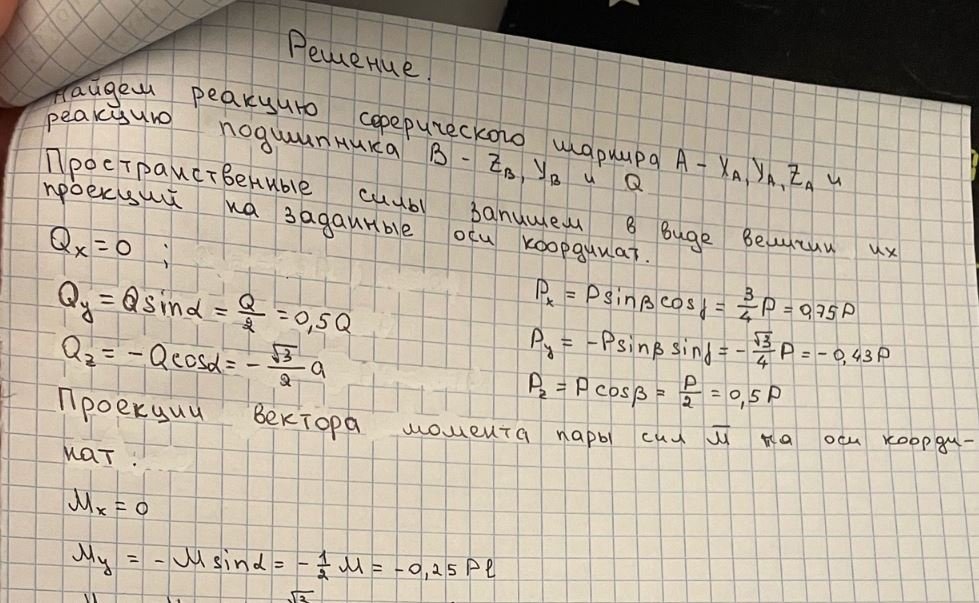 Решение.
Найдем реакцию сферического шарнира A - X_A, Y_A, Z_A и
реакцию подшипника B - Z_B, Y_B и Q
Пространственные силы запишем в виде величин их
проекций на заданные оси координат.
Q_x = 0 ;
Q_y = Q sinα = Q/2 = 0,5Q
Q_z = -Q cosα = -√3/2 Q
P_x = P sinβ cosγ = 3/4 P = 0,75P
P_y = -P sinβ sinγ = -√3/4 P = -0,43P
P_z = P cosβ = P/2 = 0,5P
Проекции вектора момента пары сил M̄ на оси коорди-
нат :
M_x = 0
M_y = -M sinα = -1/2 M = -0,25 Pl